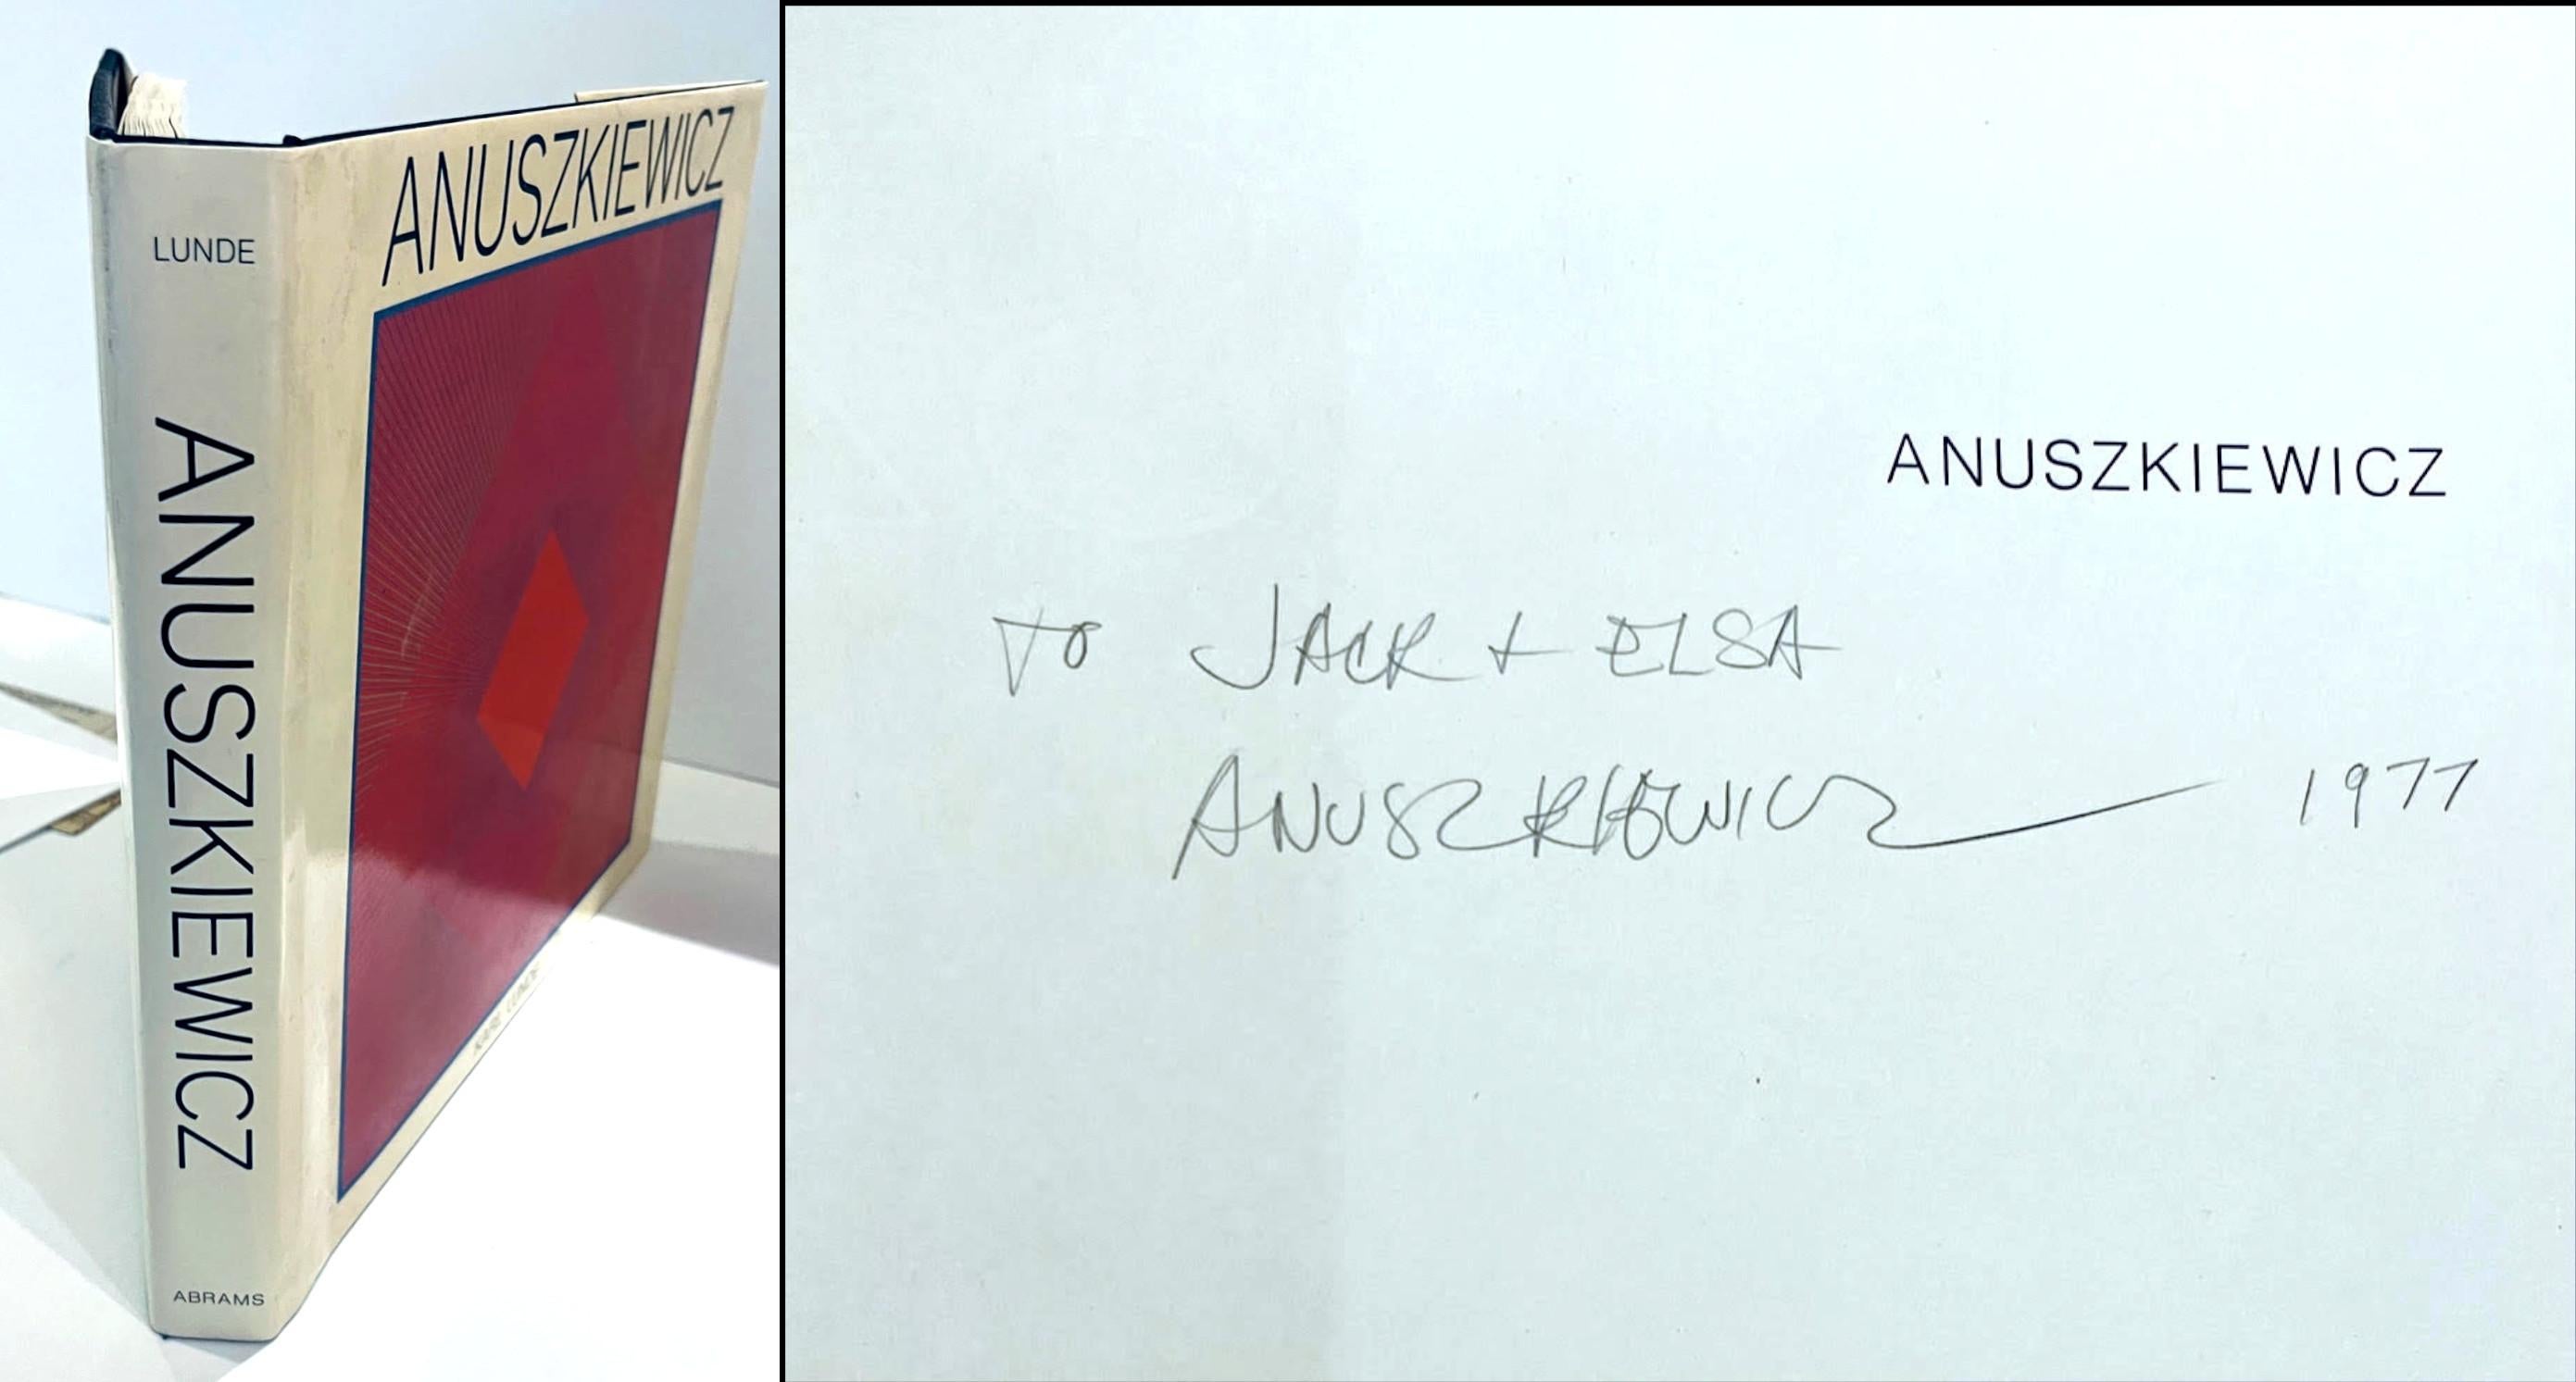 LUNDE
ANUSZKIEWICZ
ABRAMS
ANUSZKIEWICZ
KARL LUNDE
ANUSZKIEWICZ
TO JACK + ELSA
ANUSZKIEWICZ 1977